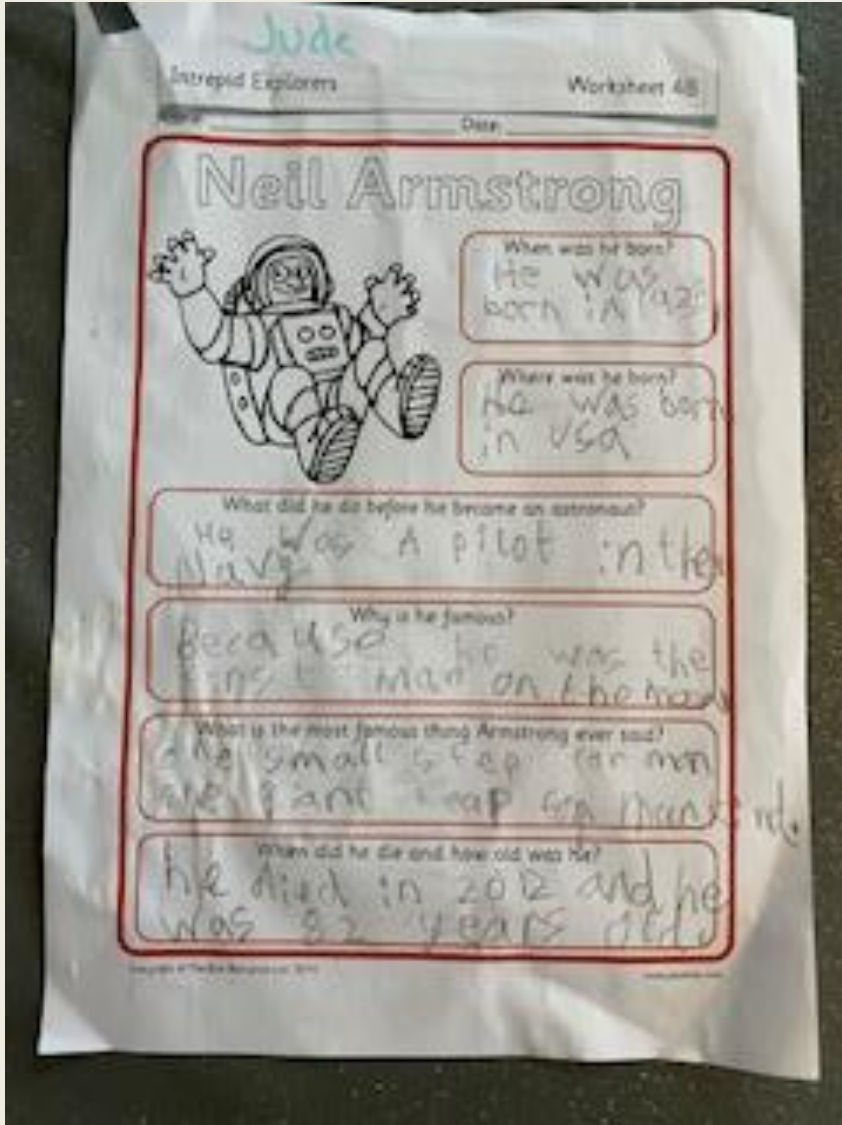 Jude
Intrepid Explorers Worksheet 4B
Name: Date:
Neil Armstrong
When was he born?
He was
born in 193
Where was he born?
He was born
in USA
What did he do before he became an astronaut?
He was A pilot in the
Navy
Why is he famous?
Because he was the
first man on the moon
What is the most famous thing Armstrong ever said?
one small step for man
one giant leap for mankind.
When did he die and how old was he?
he died in 2012 and he
was 82 years old